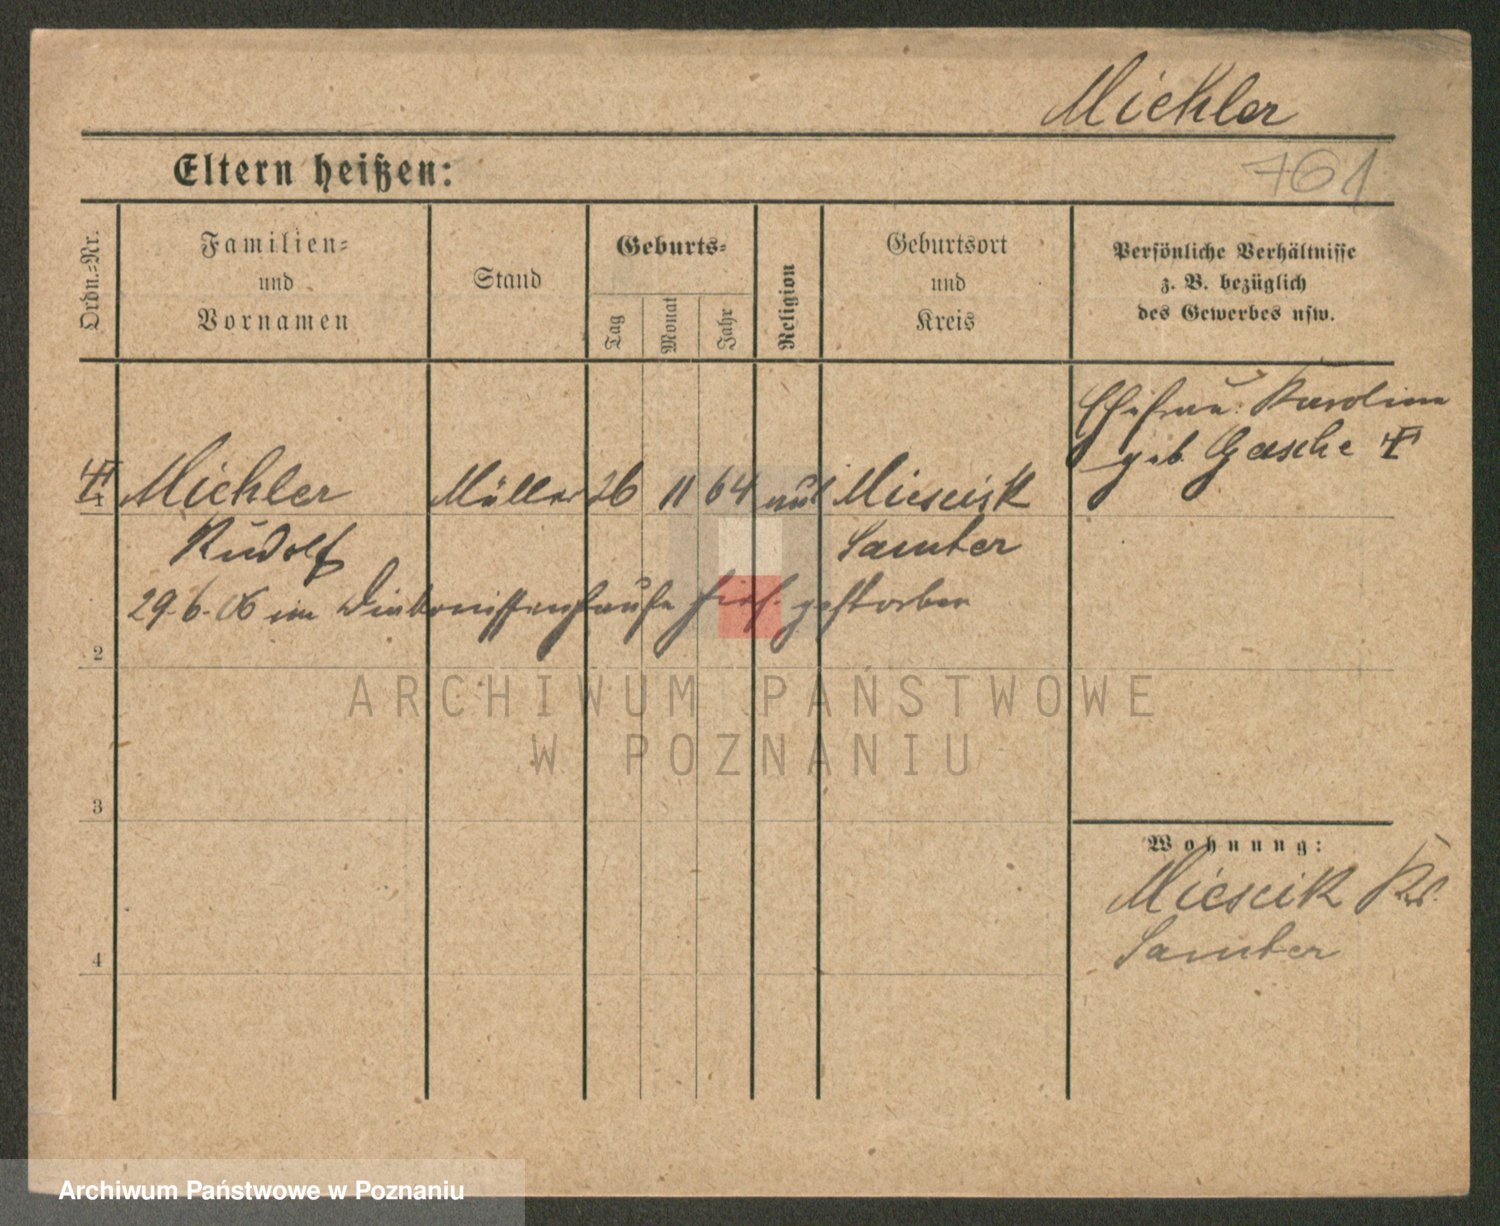 Miehler
Eltern heißen:
761
Ordn.=Nr.
Familien=
und
Vornamen
Stand
Geburts=
Tag
Monat
Jahr
Religion
Geburtsort
und
Kreis
Persönliche Verhältnisse
z. B. bezüglich
des Gewerbes usw.
Ehefrau: Karoline
geb. Gasche
1 Miehler Müller 26 11 64 Miescisk
Rudolf Samter
29.6.06 im Diakonissenhause hies. gestorben
2
ARCHIWUM PAŃSTWOWE
W POZNANIU
3
Wohnung:
Miescik Kr.
Samter
4
Archiwum Państwowe w Poznaniu